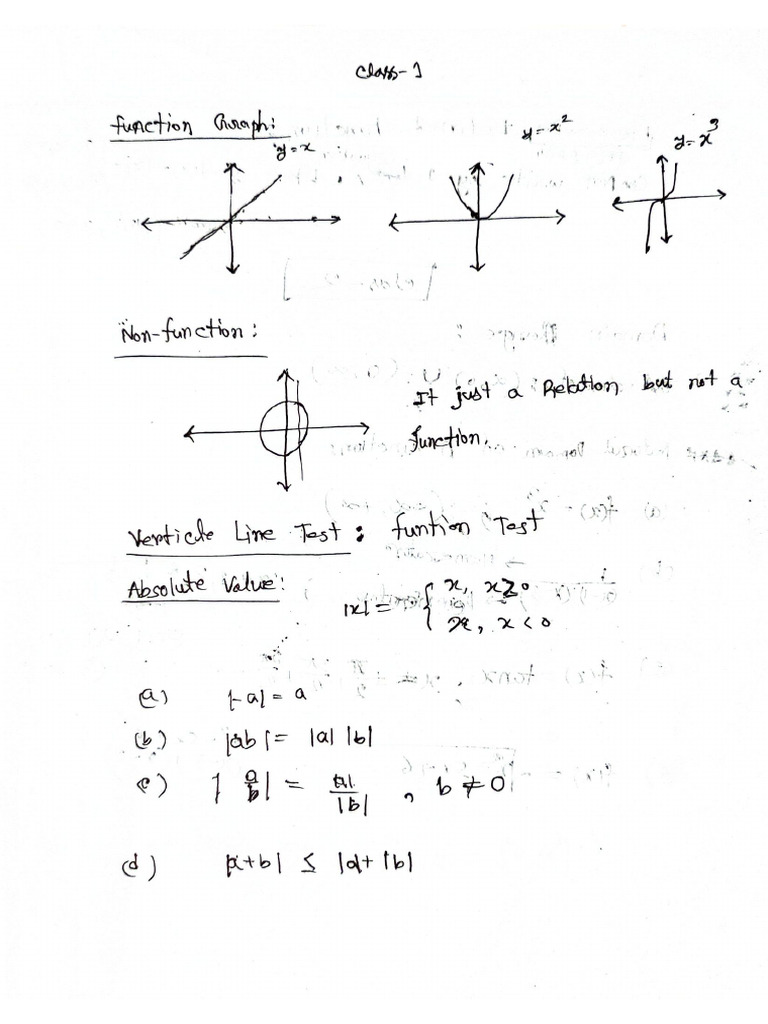 Class-1
function Graph:
y=x
y=x²
y=x³
Non-function:
It just a Relation but not a
function.
Verticle Line Test: funtion Test
Absolute Value:
|x| = { x, x≥0
x, x<0
(a) |-a| = a
(b) |ab| = |a| |b|
(c) |a/b| = |a|/|b| , b≠0
(d) |a+b| ≤ |a|+|b|